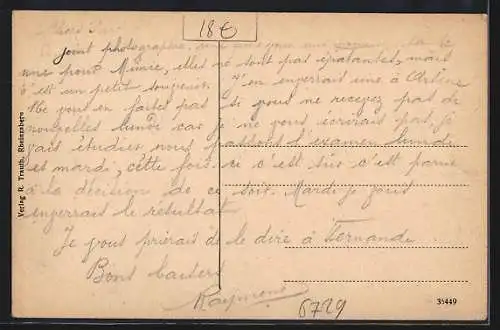 18€
Joint photographie, une pour vous une
une pour Mimie, elles ne sont pas épatantes, mais
c'est un petit souvenir. J'en enverrai une à Arlène
Ne vous en faites pas si vous ne recevez pas de
nouvelles lundi car je ne vous écrirais pas, je
vais étudier nous passons l'examen lundi
et mardi, cette fois-ci c'est sûr c'est parrie
à la décision de ce soir. Mardi je vous
enverrais le résultat
Je vous prierais de le dire à Fernande
Bons baisers
Raymond
6729
Verlag R. Trauth, Rheinzabern
35449